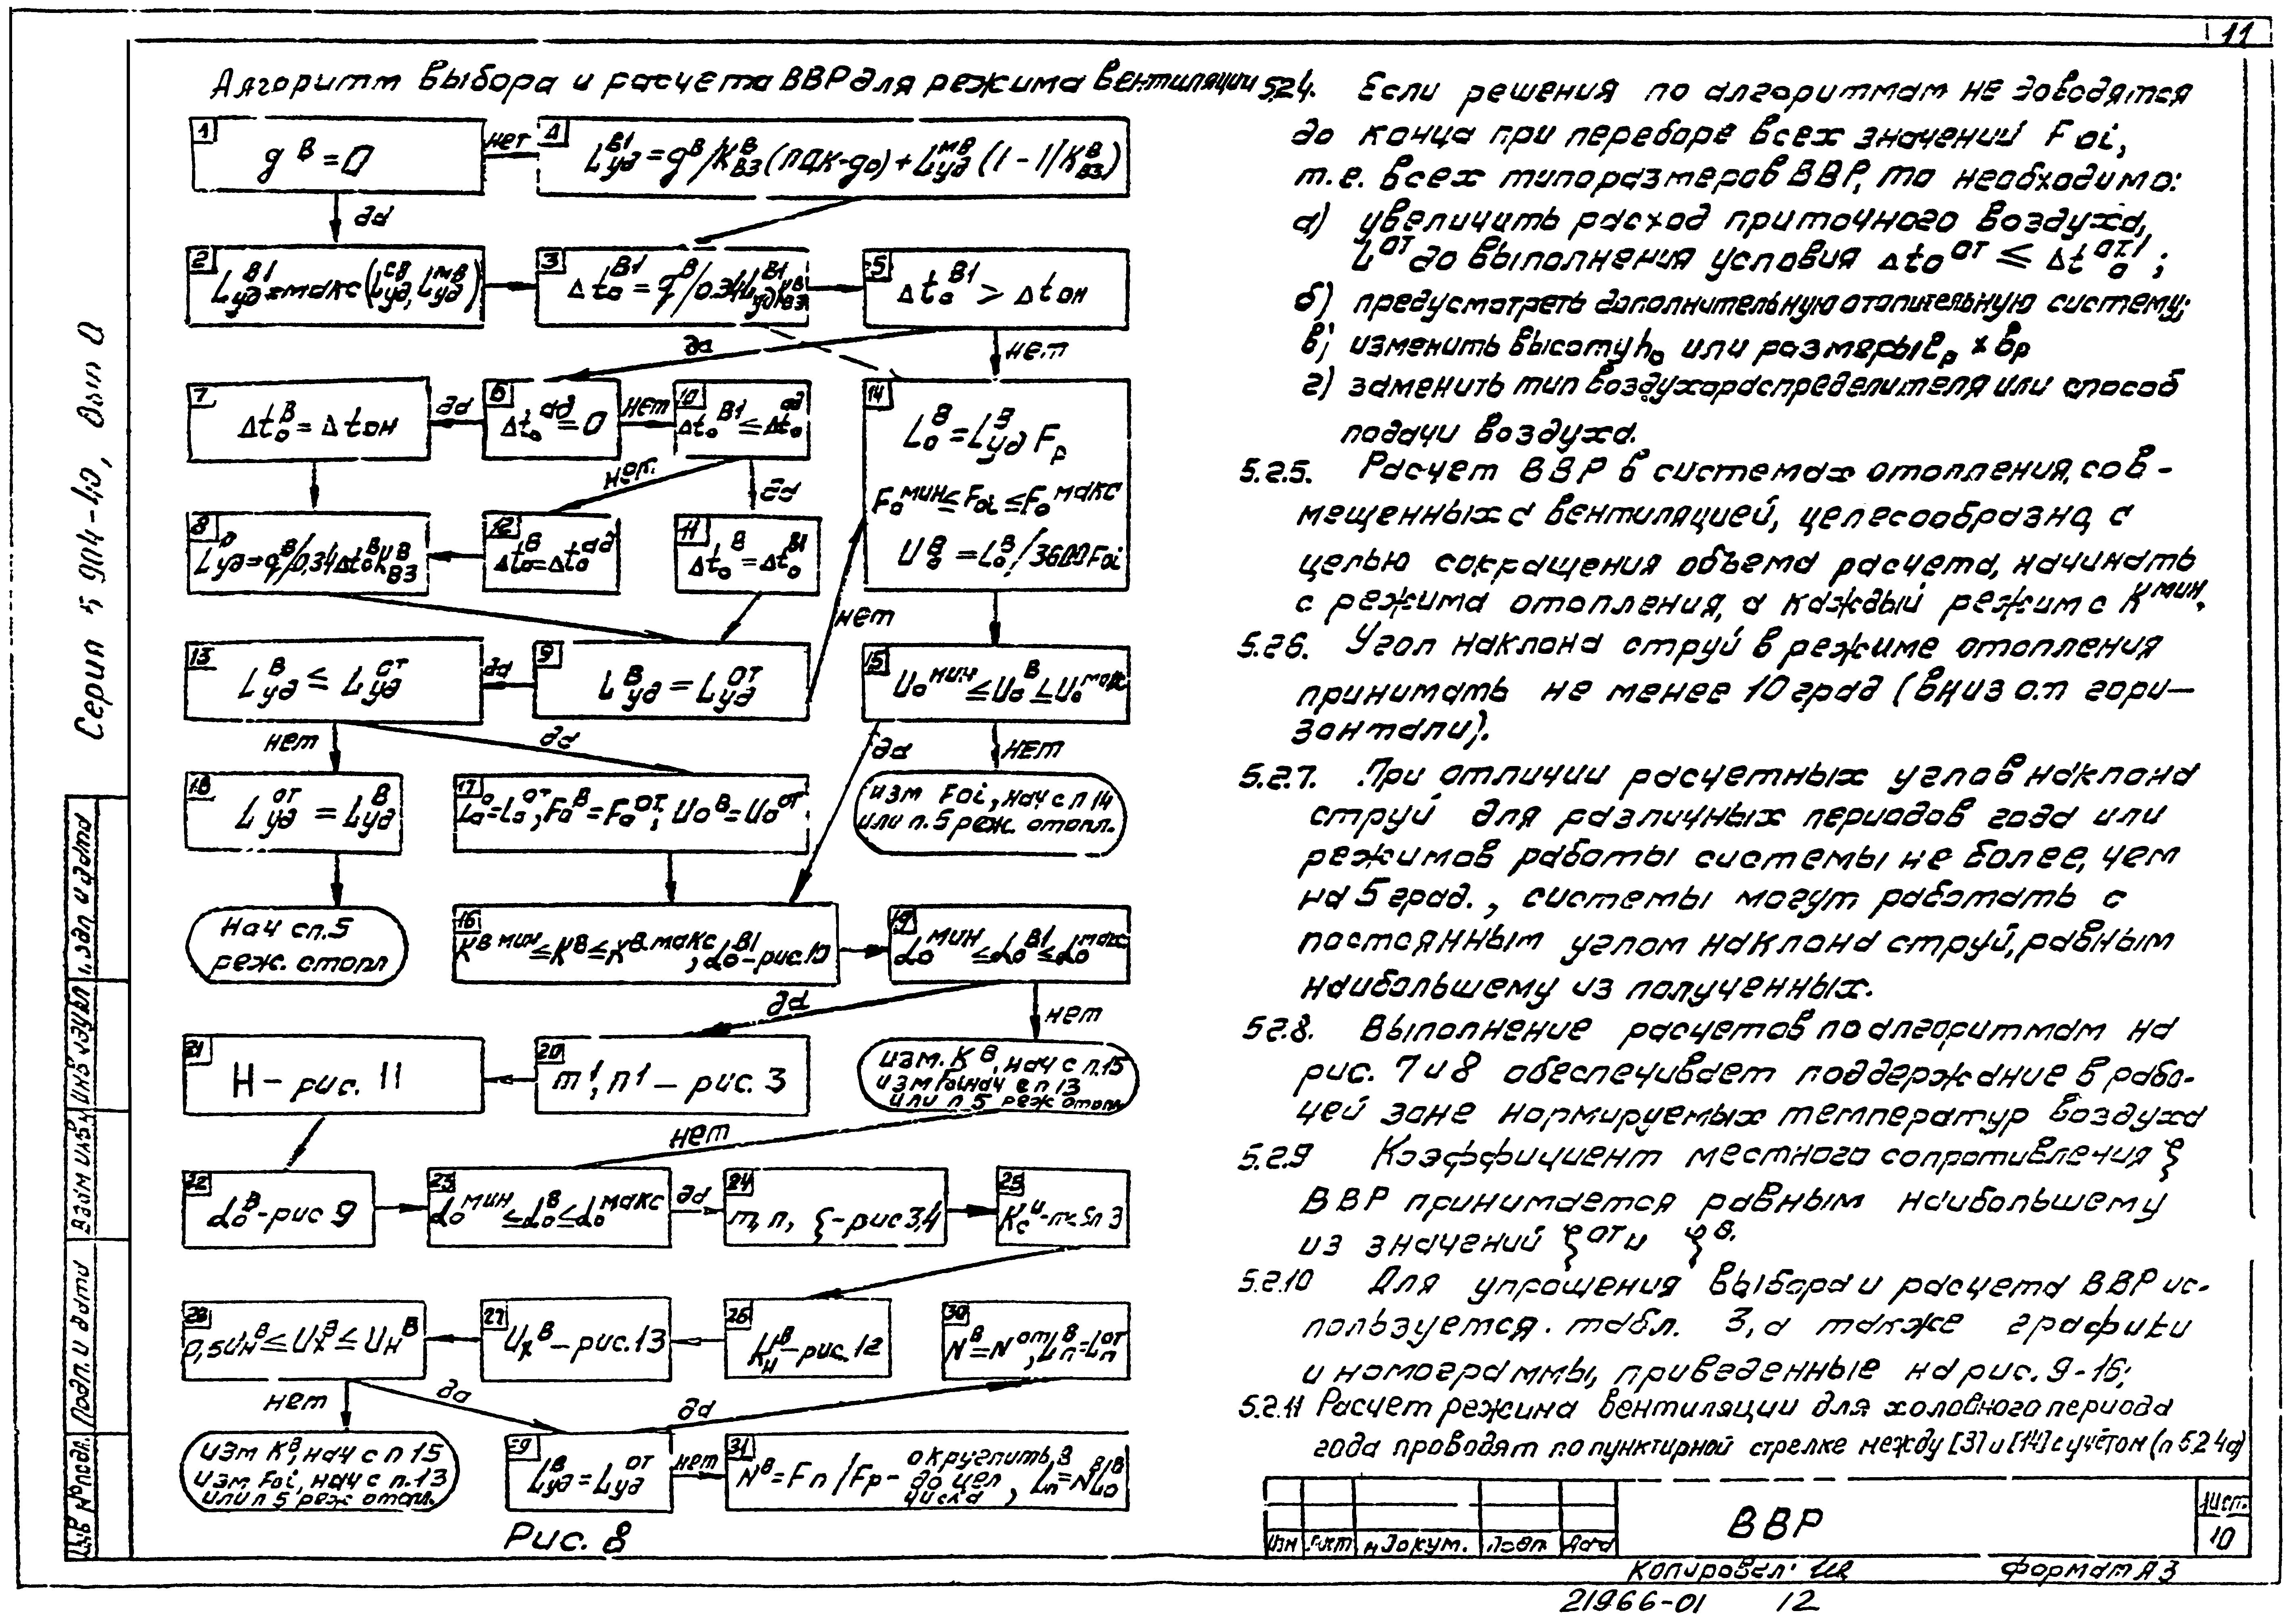 11
Алгоритм выбора и расчета ВВР для режима вентиляции
1
g^В = 0
нет
4
L_уд^В1 = g^В/К_ВЗ^В (ПДК-g_0) + L_уд^МВ (1 - 1/К_ВЗ^В)
да
2
L_уд^В1 = макс (L_уд^СВ, L_уд^МВ)
3
Δt_0^В1 = q^В/0.34 L_уд^В1 К_ВЗ^В
5
Δt_0^В1 > Δt_0н
да
нет
7
Δt_0^В = Δt_0н
да
6
Δt_0^ад = 0
нет
10
Δt_0^В1 ≤ Δt_0^ад
14
L_0^В = L_уд^В F_р
F_0^мин ≤ F_0i ≤ F_0^макс
U_0^В = L_0^В/3600 F_0i
да
8
L_уд^В = q^В/0,34 Δt_0^В К_ВЗ^В
12
Δt_0^В = Δt_0^ад
11
Δt_0^В = Δt_0^В1
нет
13
L_уд^В ≤ L_уд^ОТ
да
9
L_уд^В = L_уд^ОТ
15
U_0^мин ≤ U_0^В ≤ U_0^макс
нет
да
да
нет
18
L_уд^ОТ = L_уд^В
17
L_0^В = L_0^ОТ, F_0^В = F_0^ОТ, U_0^В = U_0^ОТ
изм F_0i, нач с п 14
или п. 5 реж. отопл.
Нач с п. 5
реж. отопл
16
К^В мин ≤ К^В ≤ К^В макс, α_0^В1 - рис. 10
19
α_0^мин ≤ α_0^В1 ≤ α_0^макс
да
нет
21
Н - рис. 11
20
m^1, n^1 - рис. 3
изм. К^В, нач с п. 15
изм F_0i нач с п 13
или п 5 реж отопл
нет
22
α_0^В - рис 9
23
α_0^мин ≤ α_0^В ≤ α_0^макс
да
24
m, n, ξ - рис 3,4
25
28
0,5 U_н^В ≤ U_х^В ≤ U_н^В
27
U_х^В - рис. 13
26
К_н^В - рис. 12
30
N^В = N^от, L_п^В = L_п^ОТ
нет
да
да
изм К^В, нач с п 15
изм F_0i, нач с п. 13
или п 5 реж отопл.
L_уд^В = L_уд^ОТ
нет
31
N^В = F_п / F_р - округлить до цел числа, L_п^В = N^В L_0^В
Рис. 8
5.2.4. Если решения по алгоритмам не доводятся
до конца при переборе всех значений F_0i,
т.е. всех типоразмеров ВВР, то необходимо:
а) увеличить расход приточного воздуха,
L^от до выполнения условия Δt_0^от ≤ Δt_0^от1;
б) предусмотреть дополнительную отопительную систему;
в) изменить высоту h_0 или размеры ℓ_р × b_р
г) заменить тип воздухораспределителя или способ
подачи воздуха.
5.2.5. Расчет ВВР в системах отопления, сов-
мещенных с вентиляцией, целесообразно, с
целью сокращения объема расчета, начинать
с режима отопления, а каждый режим с К^мин.
5.2.6. Угол наклона струй в режиме отопления
принимать не менее 10 град (вниз от гори-
зонтали).
5.2.7. При отличии расчетных углов наклона
струй для различных периодов года или
режимов работы системы не более, чем
на 5 град., системы могут работать с
постоянным углом наклона струй, равным
наибольшему из полученных.
5.2.8. Выполнение расчетов по алгоритмам на
рис. 7 и 8 обеспечивает поддержание в рабо-
чей зоне нормируемых температур воздуха
5.2.9 Коэффициент местного сопротивления ξ
ВВР принимается равным наибольшему
из значений ξ^от и ξ^В.
5.2.10 Для упрощения выбора и расчета ВВР ис-
пользуется. табл. 3, а также графики
и номограммы, приведенные на рис. 9-16;
5.2.11 Расчет режима вентиляции для холодного периода
года проводят по пунктирной стрелке между [3] и [14] с учётом (п 5.2.4а)
Серия 5 904-40, Вып 0
Взам инв №
Подп. и дата
Инв № подл.
Изм Лист № докум. Подп Дата
ВВР
Лист.
10
Копировал:
Формат А3
21966-01 12